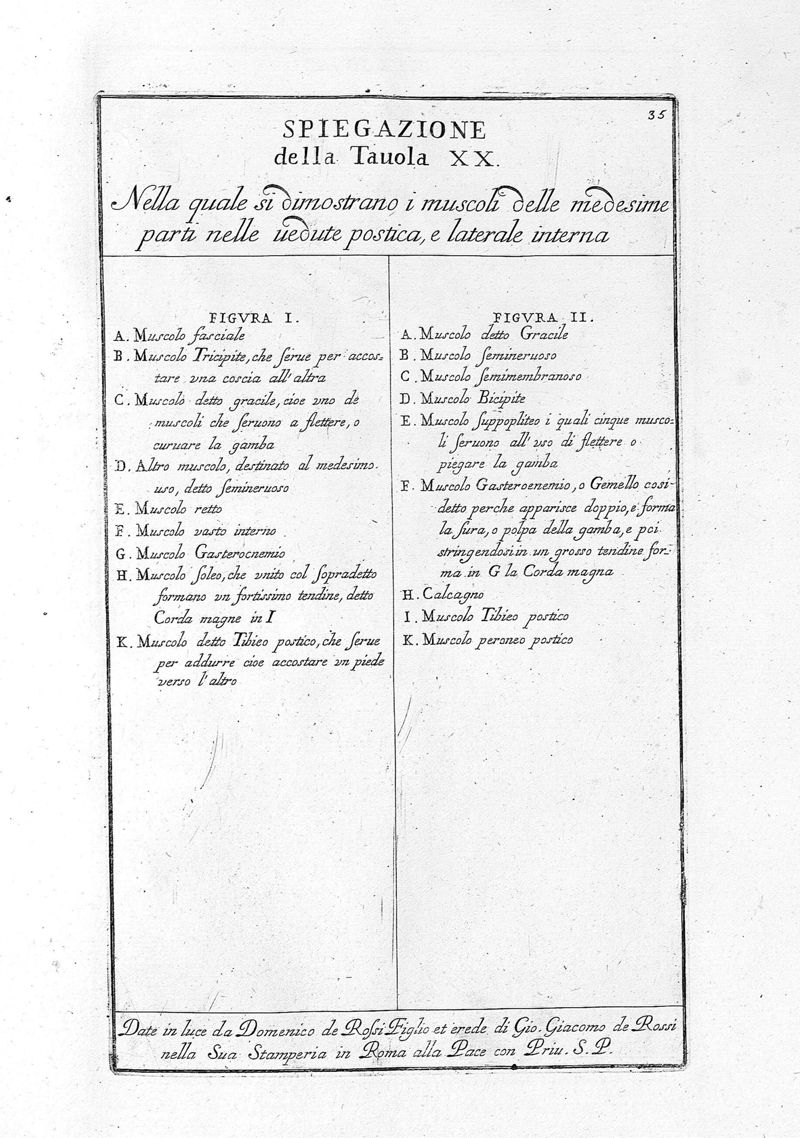 35
SPIEGAZIONE
della Tauola XX.
Nella quale si dimostrano i muscoli delle medesime
parti nelle uedute postica, e laterale interna
FIGVRA I.
A. Muscolo fasciale
B. Muscolo Tricipite, che ſerue per accos=
tare vna coscia all' altra
C. Muscolo detto gracile, cioe vno dè
muscoli che ſeruono a flettere, o
curuare la gamba
D. Altro muscolo, destinato al medesimo
uso, detto ſemineruoso
E. Muscolo retto
F. Muscolo vasto interno
G. Muscolo Gasterocnemio
H. Muscolo ſoleo, che vnito col ſopradetto
formano vn fortissimo tendine, detto
Corda magne in I
K. Muscolo detto Tibieo postico, che ſerue
per addurre cioe accostare vn piede
verso l' altro
FIGVRA II.
A. Muscolo detto Gracile
B. Muscolo ſemineruoso
C. Muscolo ſemimembranoso
D. Muscolo Bicipite
E. Muscolo ſuppopliteo i quali cinque musco=
li ſeruono all' vso di flettere o
piegare la gamba
F. Muscolo Gasteroenemio, o Gemello cosi-
detto perche apparisce doppio, e forma
la ſura, o polpa della gamba, e poi
stringendosi in un grosso tendine for=
ma in G la Corda magna
H. Calcagno
I. Muscolo Tibieo postico
K. Muscolo peroneo postico
Date in luce da Domenico de Roſsi Figlio et erede di Gio. Giacomo de Rossi
nella Sua Stamperia in Roma alla Pace con Priu. S. P.